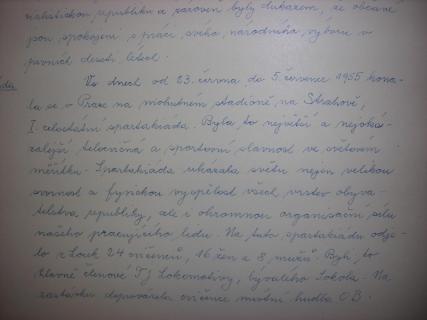 republiku a zároveň byly důkazem, že občané
jsou spokojeni s prací svého národního výboru v
prvních deseti letech.
Ve dnech od 23. června do 5. července 1955 kona-
la se v Praze na mohutném stadióně na Strahově,
I. celostátní spartakiáda. Byla to největší a nejoká-
zalejší tělocvičná a sportovní slavnost ve světovém
měřítku. Spartakiáda ukázala světu nejen velikou
svornost a fyzickou vyspělost všech vrstev obyva-
telstva republiky, ale i ohromnou organisační sílu
našeho pracujícího lidu. Na tuto spartakiádu odje-
lo z Louk 24 cvičenců, 16 žen a 8 mužů. Byli to
hlavně členové TJ Lokomotivy, bývalého Sokola. Na
zastávku doprovázela cvičence místní hudba OB.